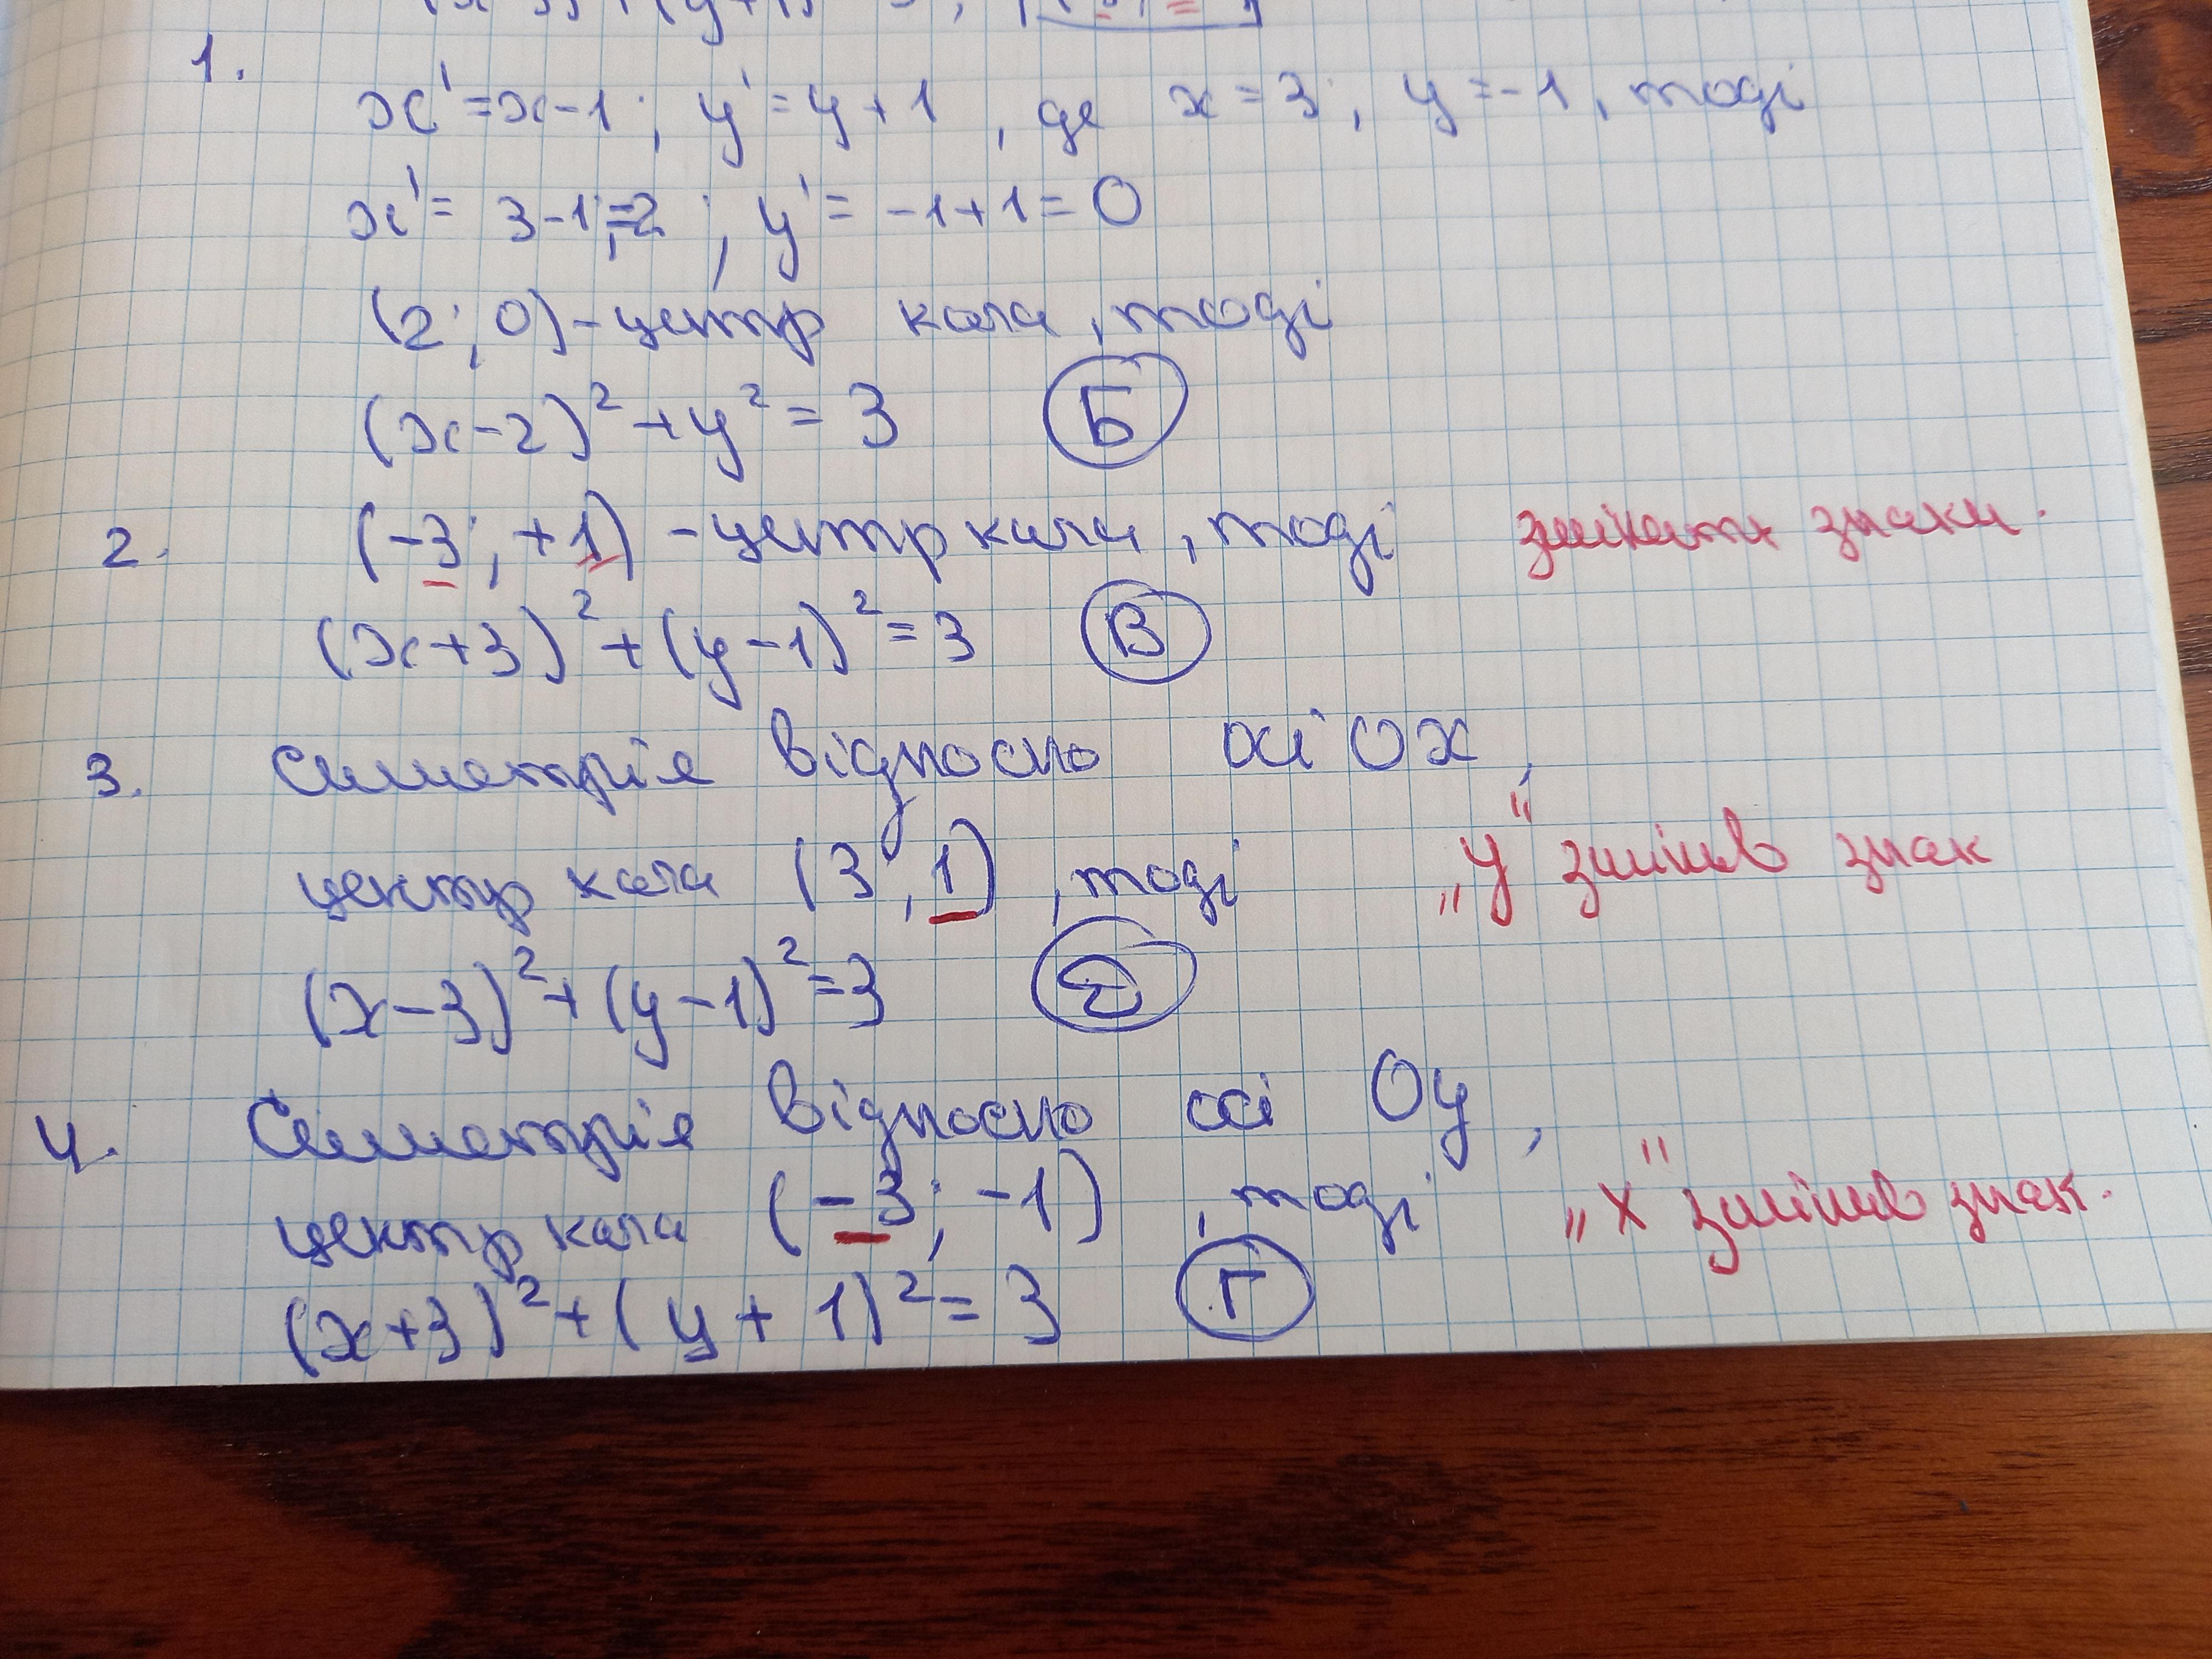 1.
x' = x - 1; y' = y + 1, де x = 3; y = -1, тоді
x' = 3 - 1 = 2; y' = -1 + 1 = 0
(2; 0) - центр кола, тоді
(x-2)² + y² = 3 Б
2. (-3; +1) - центр кола, тоді змінити знаки.
(x+3)² + (y-1)² = 3 В
3. Симетрія відносно осі Ох,
центр кола (3; 1), тоді „у" змінив знак
(x-3)² + (y-1)² = 3
4. Симетрія відносно осі Оу,
центр кола (-3; -1), тоді „х" змінив знак.
(x+3)² + (y+1)² = 3 Г